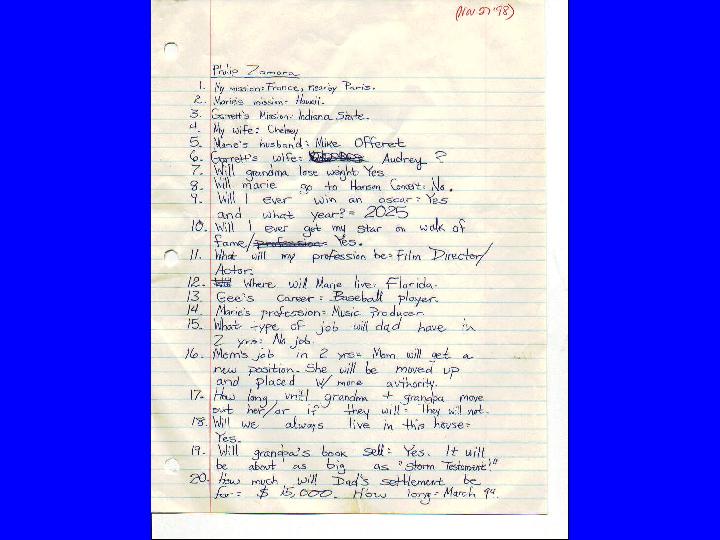 (Nov 27 '98)
Philip Zamora
1. My mission: France, nearby Paris.
2. Marie's mission: Hawaii.
3. Garrett's Mission: Indiana State.
4. My wife: Chelsey
5. Marie's husband: Mike Offeret
6. Garrett's wife: Audrey ?
7. Will grandma lose weight Yes
8. Will marie go to Hanson Concert: No.
9. Will I ever win an oscar: Yes
and what year? = 2025
10. Will I ever get my star on walk of
fame/profession= Yes.
11. What will my profession be: Film Director/
Actor.
12. Where will Marie live: Florida.
13. Gee's career: Baseball player.
14. Marie's profession: Music Producer.
15. What type of job will dad have in
2 yrs: No job.
16. Mom's job in 2 yrs= Mom will get a
new position. She will be moved up
and placed w/ more authority.
17. How long until grandma + grandpa move
out her/or if they will: They will not.
18. Will we always live in this house=
Yes.
19. Will grandpa's book sell: Yes. It will
be about as big as "Storm Testament"
20. How much will Dad's settlement be
for = $15,000. How long= March 99.